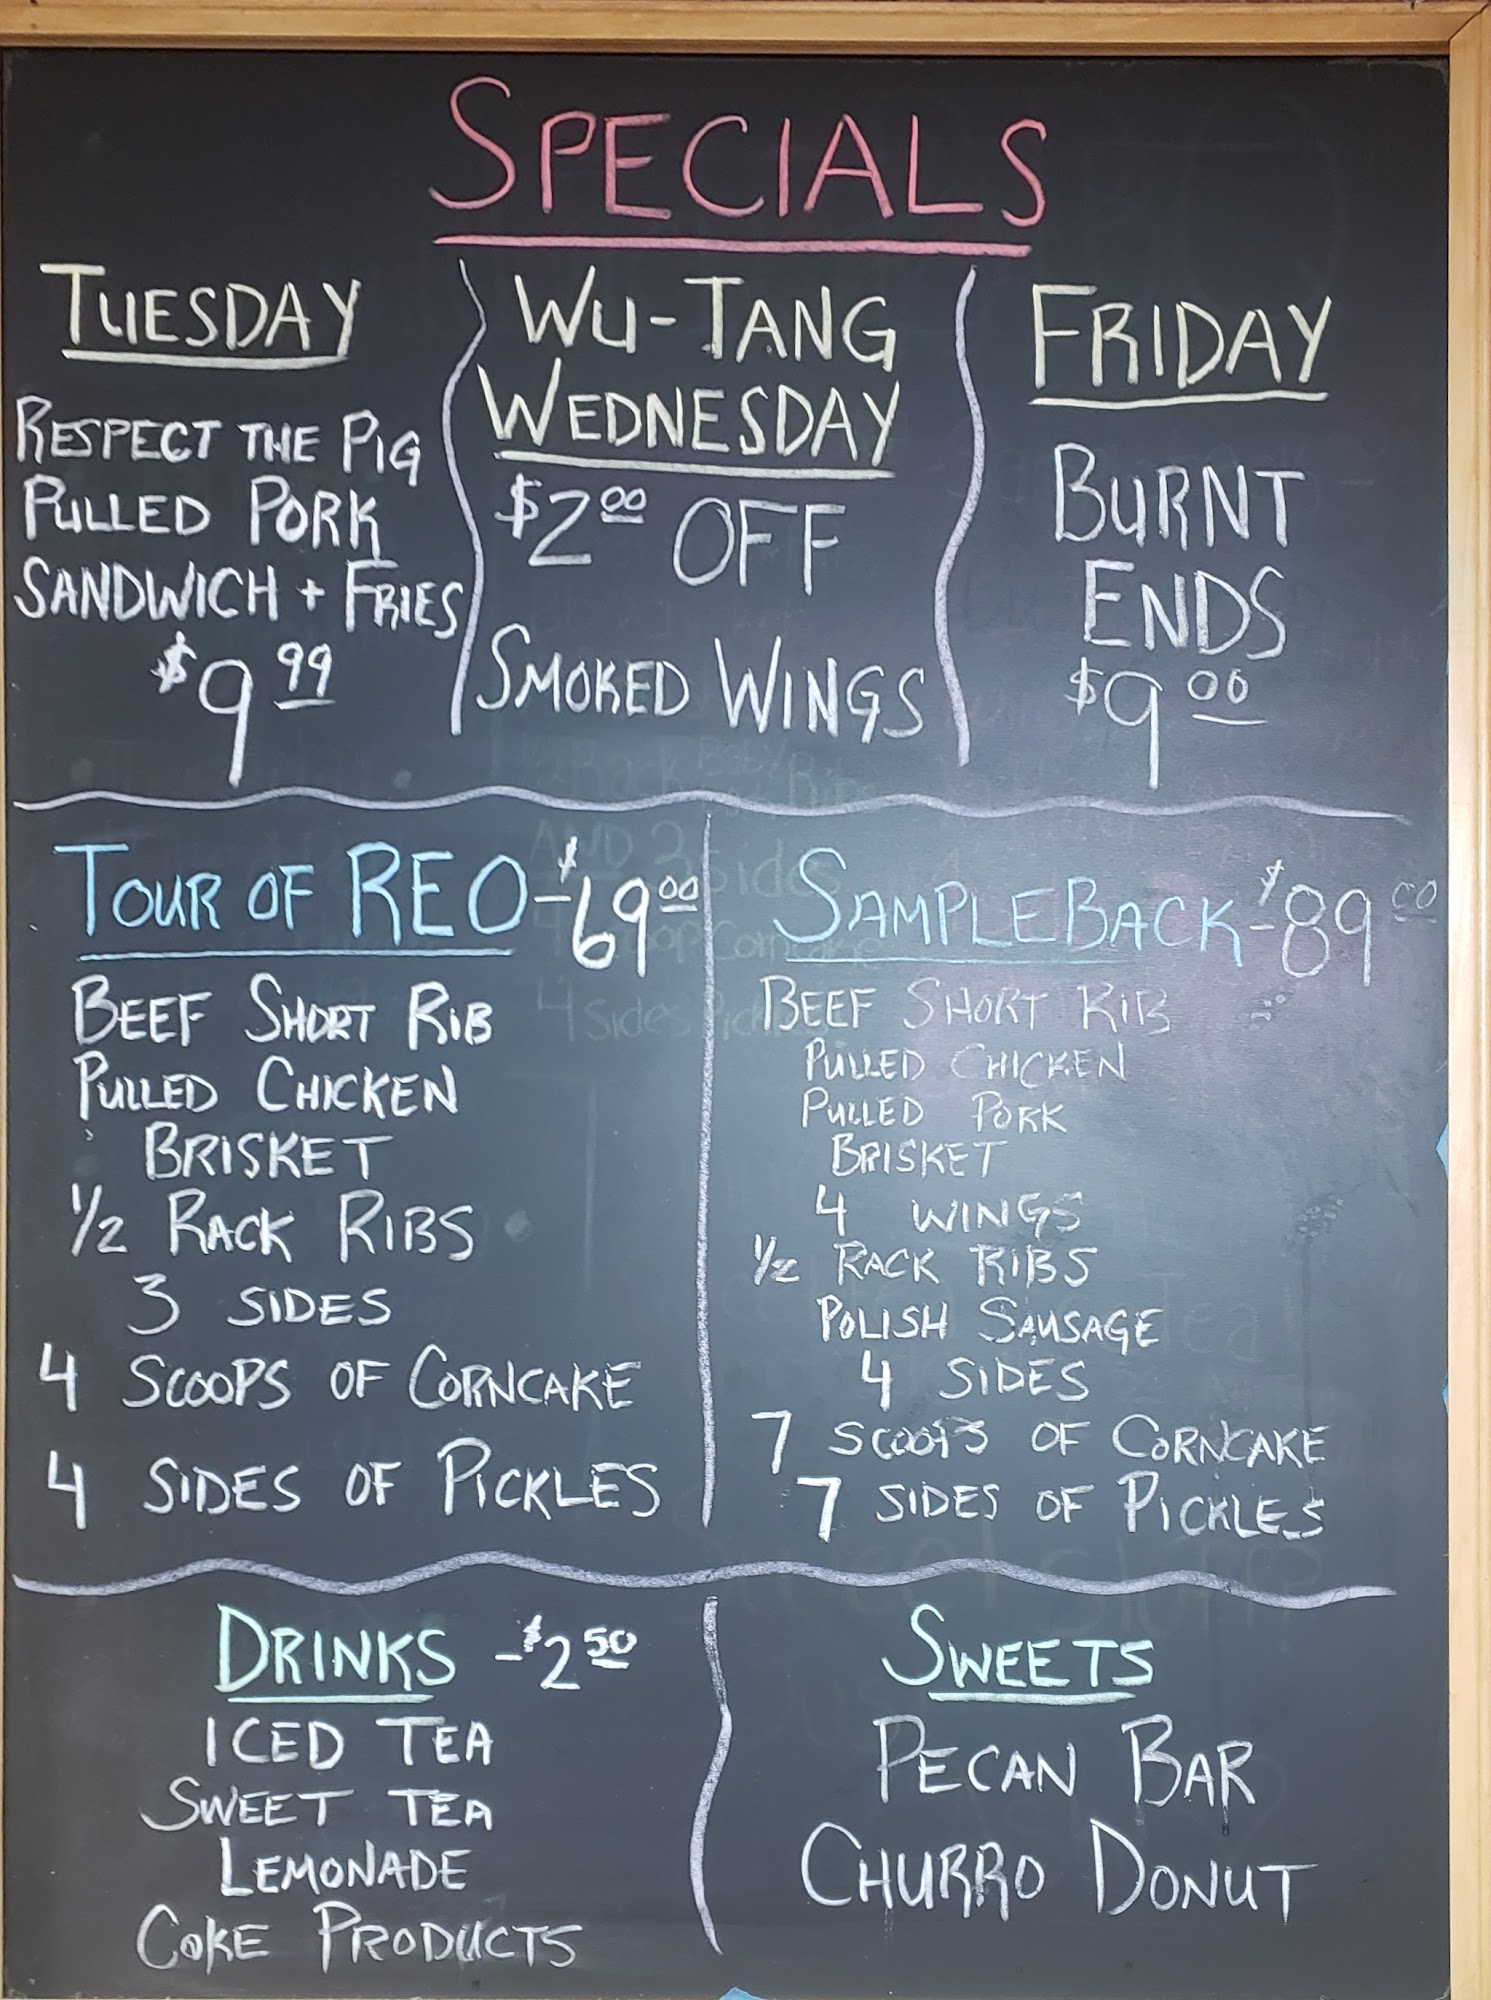 SPECIALS
TUESDAY
RESPECT THE PIG
PULLED PORK
SANDWICH + FRIES
$9 99
WU-TANG
WEDNESDAY
$2 00 OFF
SMOKED WINGS
FRIDAY
BURNT
ENDS
$9 00
TOUR OF REO - $69 00
BEEF SHORT RIB
PULLED CHICKEN
BRISKET
1/2 RACK RIBS
3 SIDES
4 SCOOPS OF CORNCAKE
4 SIDES OF PICKLES
SAMPLEBACK - $89 00
BEEF SHORT RIB
PULLED CHICKEN
PULLED PORK
BRISKET
4 WINGS
1/2 RACK RIBS
POLISH SAUSAGE
4 SIDES
7 SCOOPS OF CORNCAKE
7 SIDES OF PICKLES
DRINKS - $2 50
ICED TEA
SWEET TEA
LEMONADE
COKE PRODUCTS
SWEETS
PECAN BAR
CHURRO DONUT